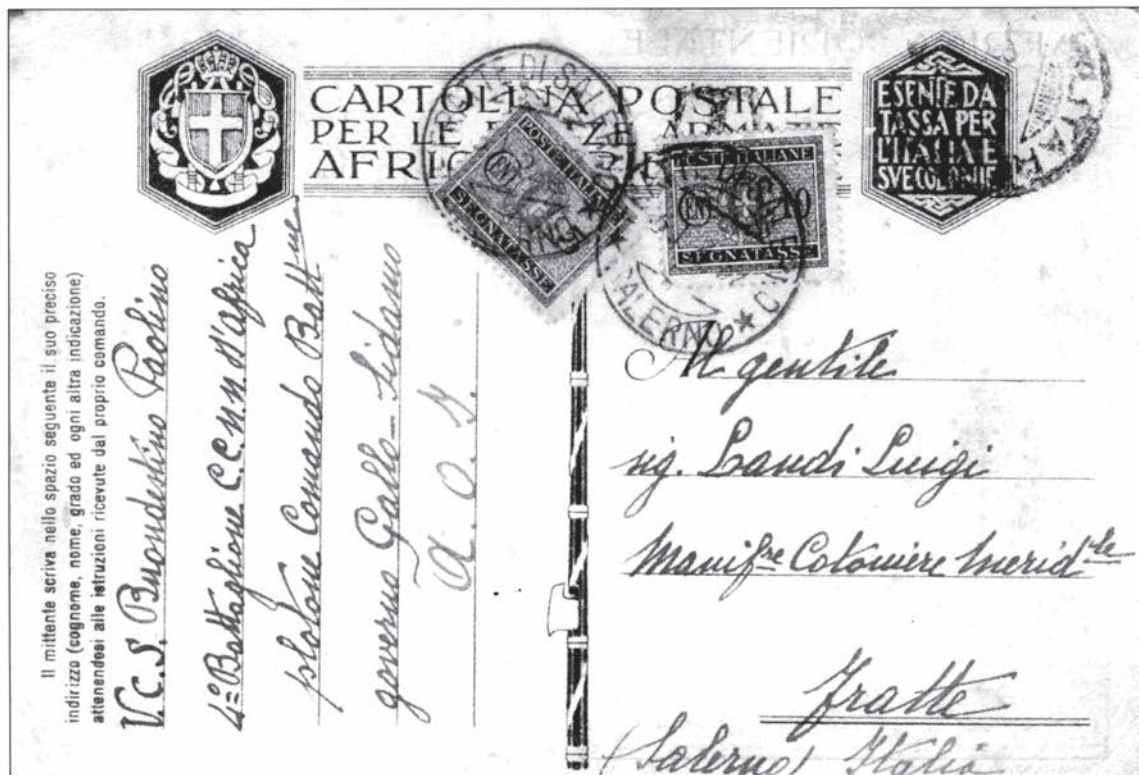 CARTOLINA POSTALE
PER LE
AFRIC
ESENTE DA
TASSA PER
L'ITALIA E
SVE COLONIE
POSTE ITALIANE
SEGNATASSE
POSTE ITALIANE
CENT 10
SEGNATASSE
SALERNO
Il mittente scriva nello spazio seguente il suo preciso
indirizzo (cognome, nome, grado ed ogni altra indicazione)
attenendosi alle istruzioni ricevute dal proprio comando.
V.C.S. Buondestino Paolino
4º Battaglione C.C.N.N. d'Africa
plotone Comando Batt ne
governo Galla-Sidamo
A. O. I.
Al gentile
sig. Landi Luigi
Manif.re Cotoniere Merid.le
Fratte
(Salerno) Italia